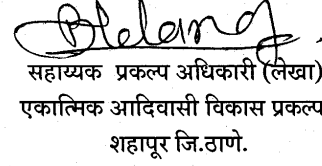 सहाय्यक प्रकल्प अधिकारी (लेखा)
एकात्मिक आदिवासी विकास प्रकल्प
शहापूर जि.ठाणे.